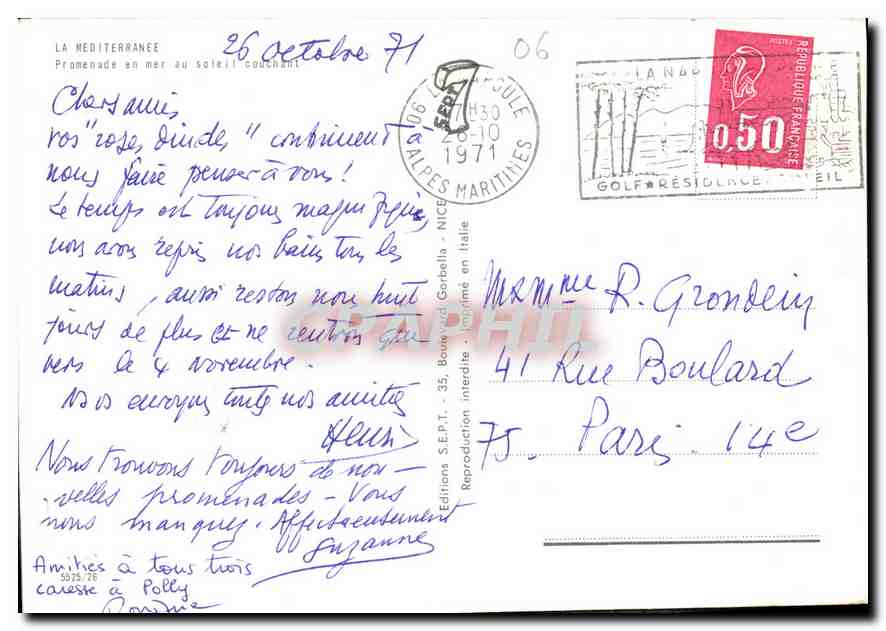 LA MÉDITERRANÉE
Promenade en mer au soleil couchant
26 octobre 71
06
Chers amis
vos "roses dindes" continuent à
nous faire penser à vous!
Le temps est toujours magnifique,
nous avons repris nos bains tous les
matins, aussi restons nous huit
jours de plus et ne rentrons que
vers le 4 novembre.
envoyons toutes nos amitiés
Henri
Nous trouvons toujours de nou-
velles promenades - Vous
nous manquez. Affectueusement
Suzanne
Amitiés à tous trois
5525/26
caresse à Polly
Editions S.E.P.T. - 35, Boulevard Gorbella - NICE
Reproduction interdite - Imprimé en Italie
S.E.P.T.
7
06
H30
26-10
1971
ALPES MARITIMES
LA NAP
GOLF★RÉSIDENCE
POSTES
RÉPUBLIQUE FRANÇAISE
0,50
CPAPHIL
R. Grondein
41 Rue Boulard
75. Paris. 14e